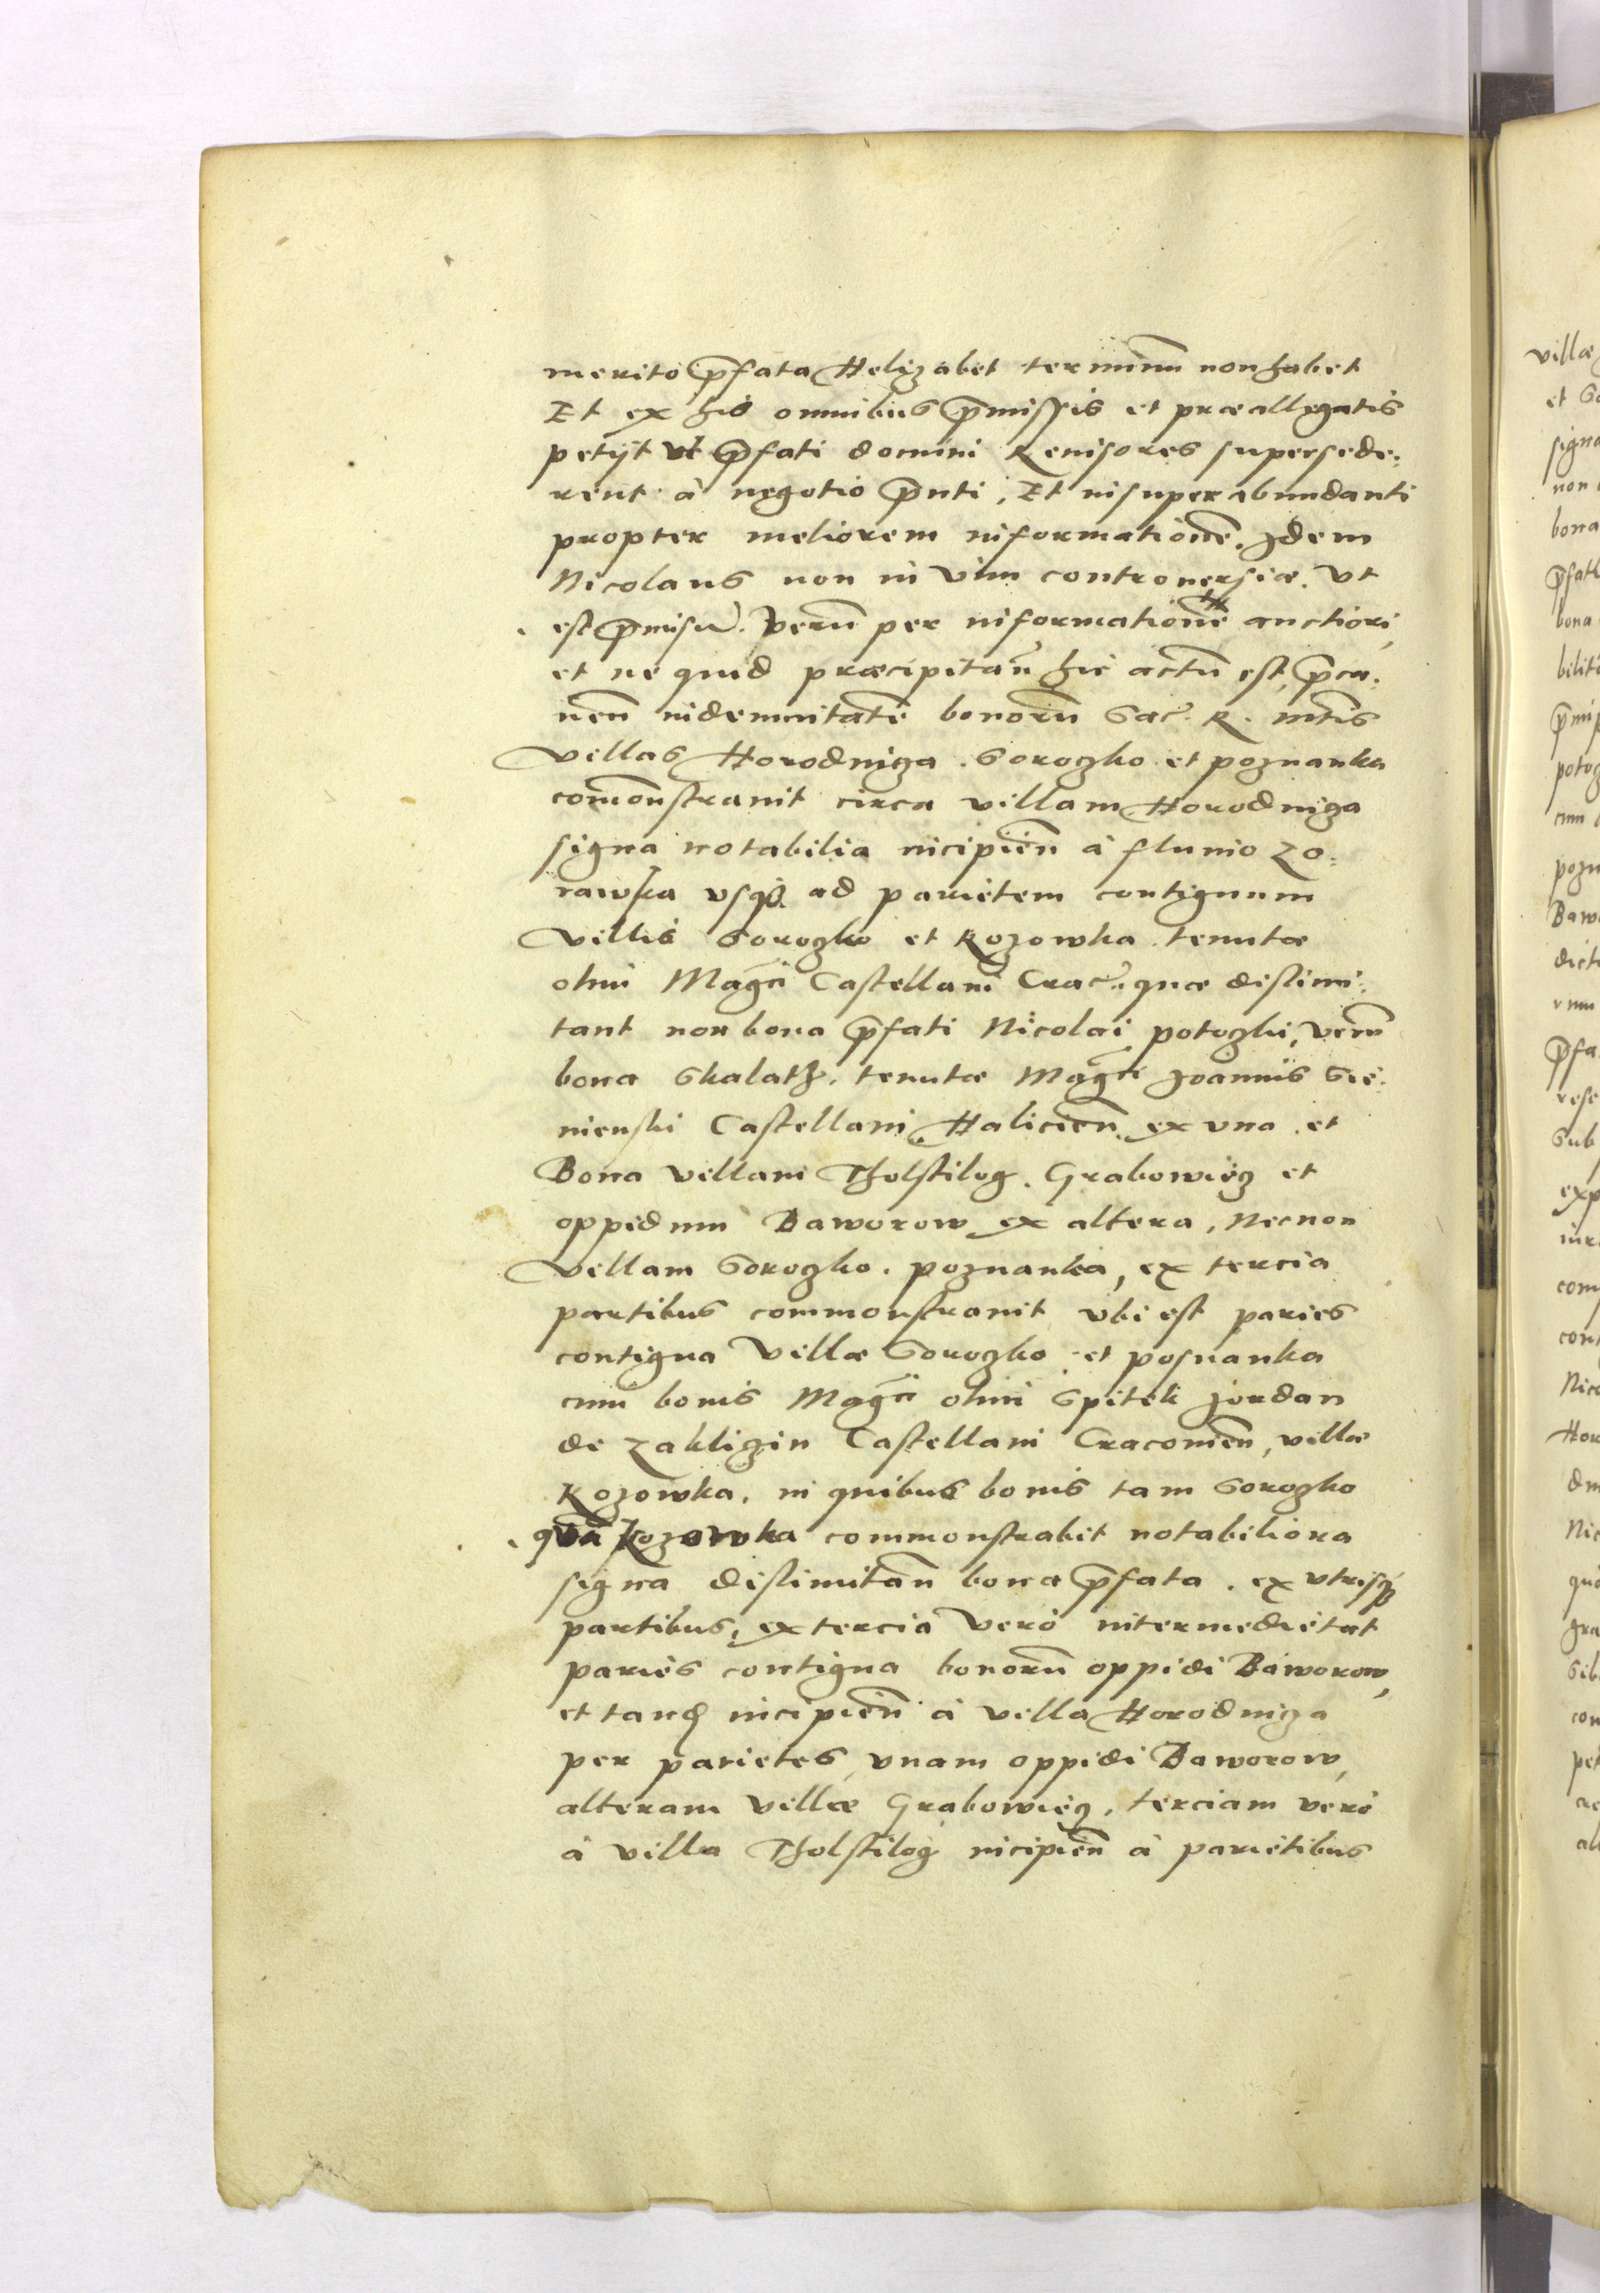 merito p̄fata Helizabet terminū non habet
Et ex his omnibus p̄missis et præallegatis
petijt vt p̄fati domini Reuisores supersede:
rent à negotio p̄nti, Et in superabundanti
propter meliorem informationē. Idem
Nicolaus non in vim controuersiæ. vt
est p̄missū. Verū per informationē auctiorē,
et ne quid præcipitan̄ hic actū est, p̄ca:
uen̄ indemnitatē bonorū Sac. R. mtis
Villas Horodnicza. Soroczko et poznanka
comōnstrauit circa villam Horodnicza
signa notabilia incipien̄ à fluuio Zo:
rawka vsq; ad parietem contiguum
Villis Soroczko et Kozowka tenutæ
olim Magci Castellani Crac. quæ distimi:
tant non bona p̄fati Nicolai potoczki, verū
bona Skalath. tenutæ Magci Joannis Sie:
nienski Castellani Halicien̄ ex vna. et
Bona Villam Tholstilog. Grabowiecz et
oppidum Baworow ex altera, Necnon
Villam Soroczko. poznanka, ex tercia
partibus commonstrauit vbi est paries
contigua Villæ Soroczko et posnanka
cum bonis Magci olim Spitek Jordan
de Zakliczin Castellani Cracouien̄, villæ
Kozowka. in quibus bonis tam Soroczko
quā Kozowka commonstrabit notabiliora
signa distimitan̄ bona p̄fata. ex vtrisq;
partibus, ex tercia vero intermedietat
paries contigua bonorū oppidi Baworow,
et tand incipien̄ à villa Horodnicza
per parietes, vnam oppidi Baworow,
alteram Villæ Grabowiecz, terciam vero
à villa Tholstilog incipien̄ à parietibus